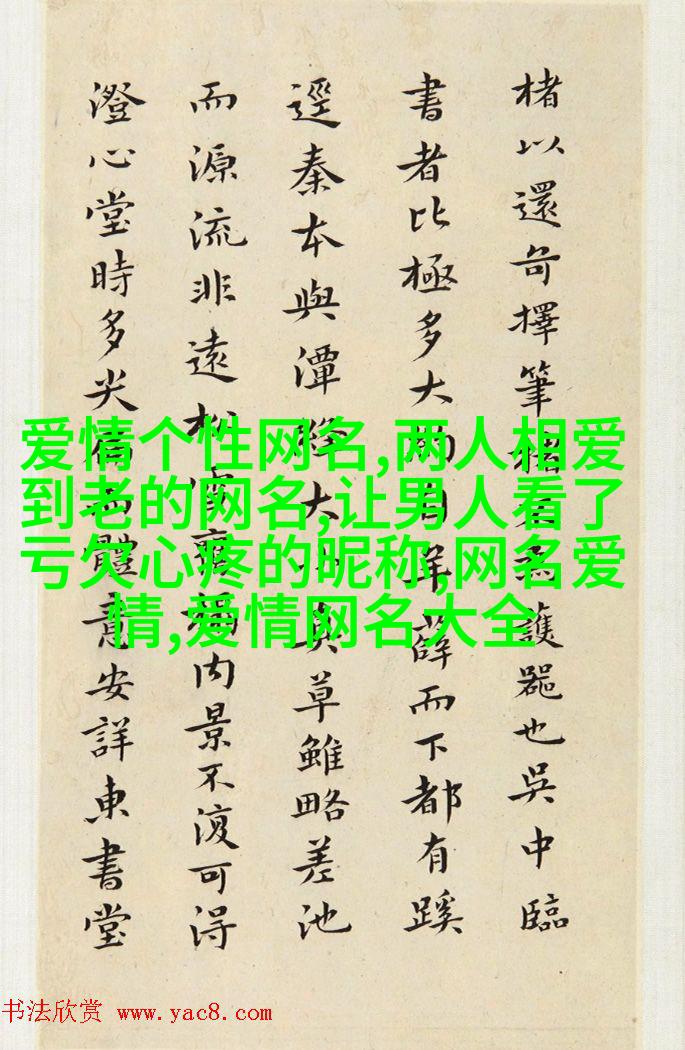 楮以還奇擇筆楮護器也吳中臨
書者比極多大約自羊薛而下都有蹊
逕秦本與潭絳大小真草雖略差池
而源流非遠松雪內景不復可得
澄心堂時多尖偏體意安詳東書堂
爱情个性网名,两人相爱
到老的网名,让男人看了
亏欠心疼的昵称,网名爱
情,爱情网名大全
书法欣赏 www.yac8.com